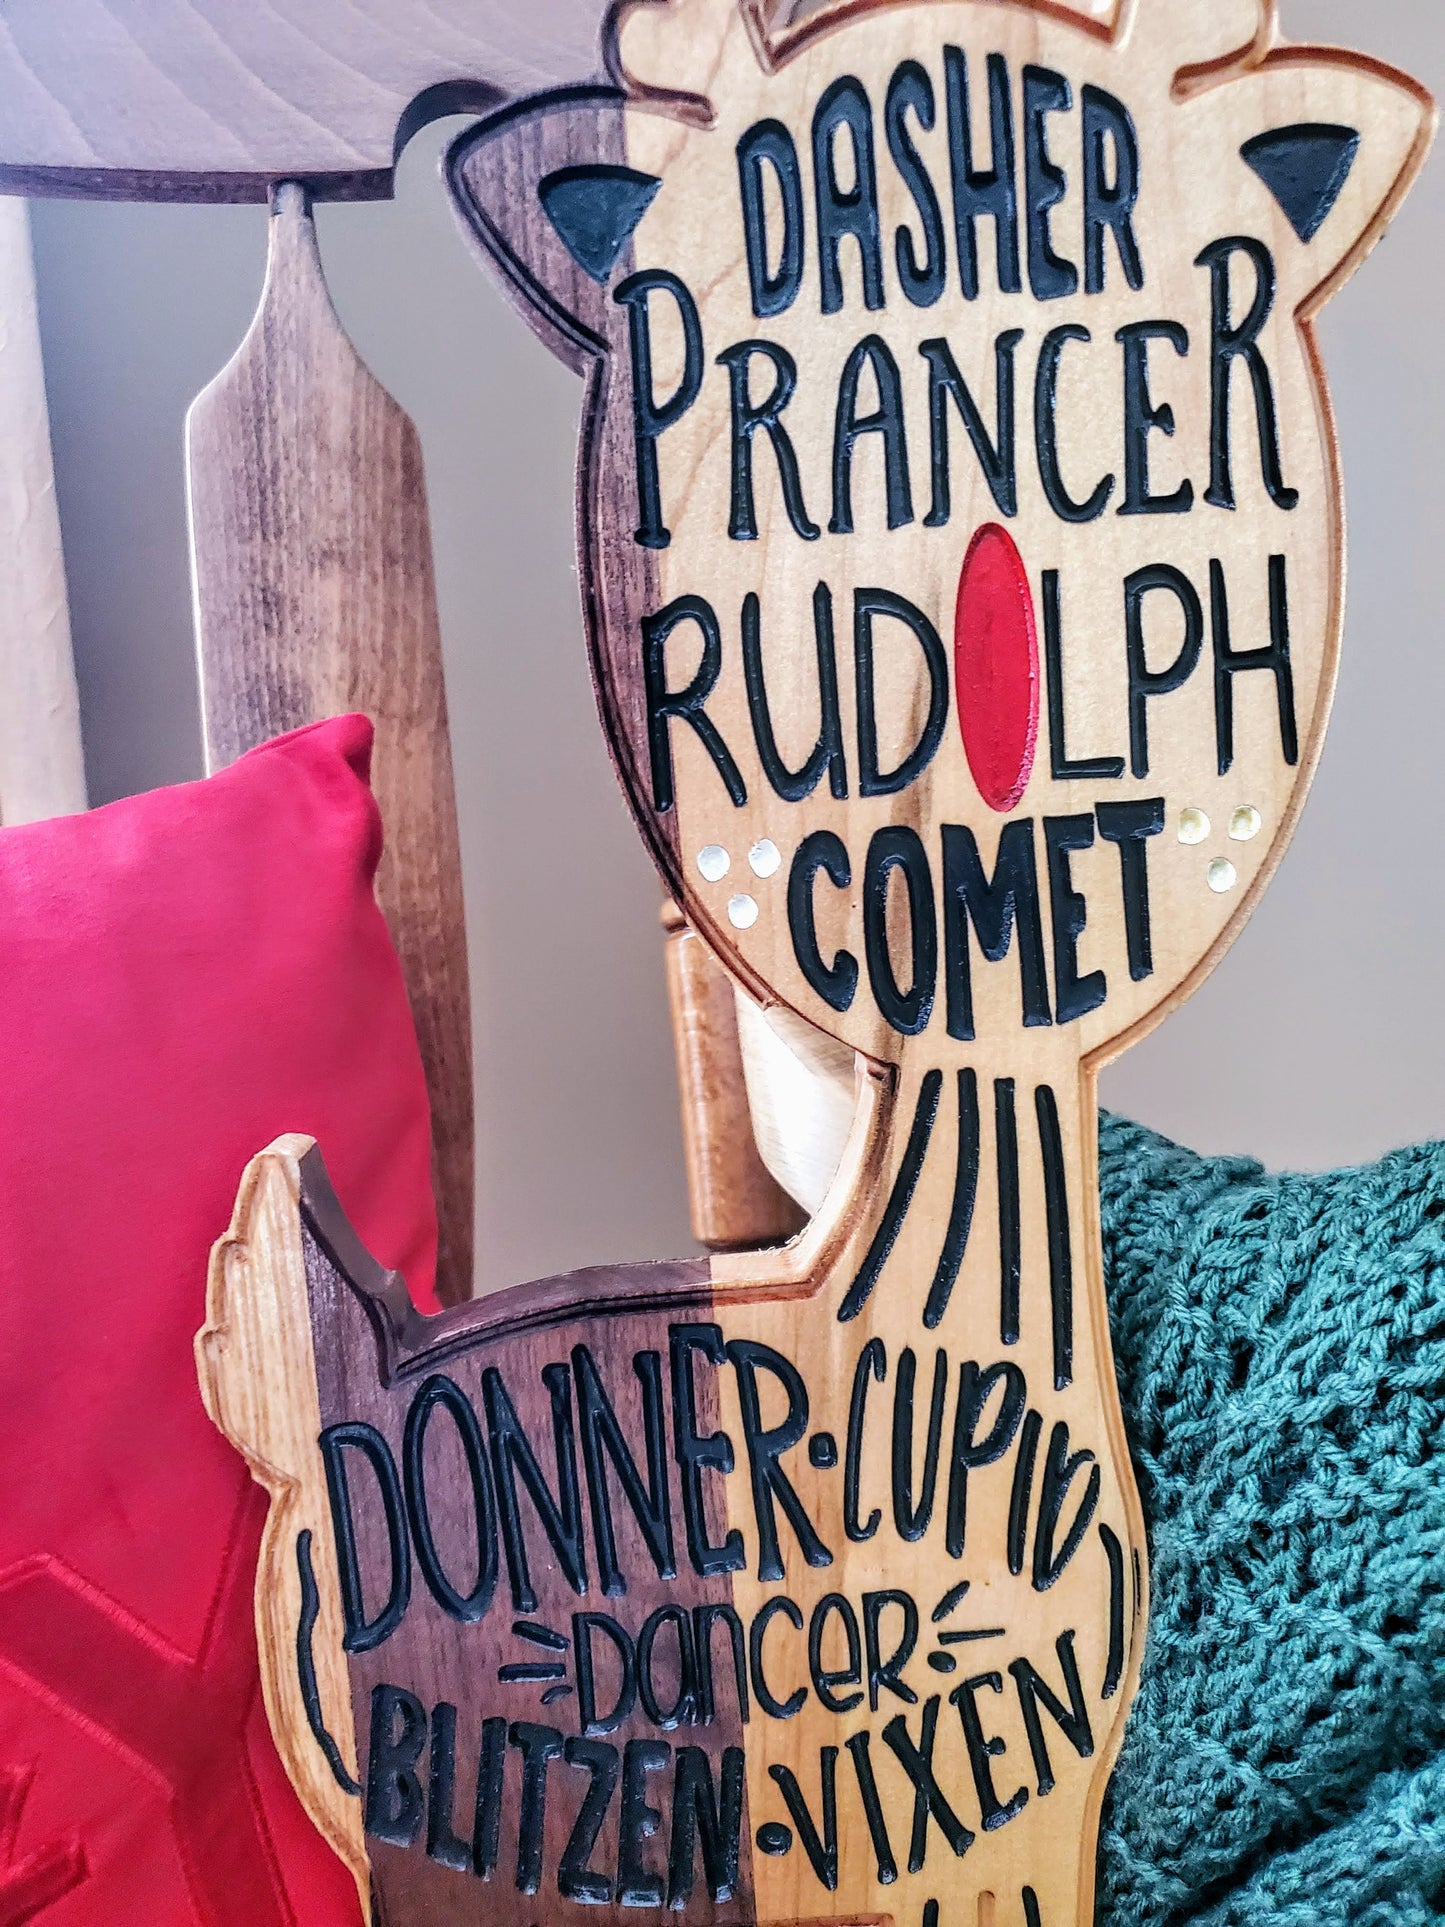 DASHER
PRANCER
RUDOLPH
COMET
DONNER·CUPID
DANCER
BLITZEN·VIXEN